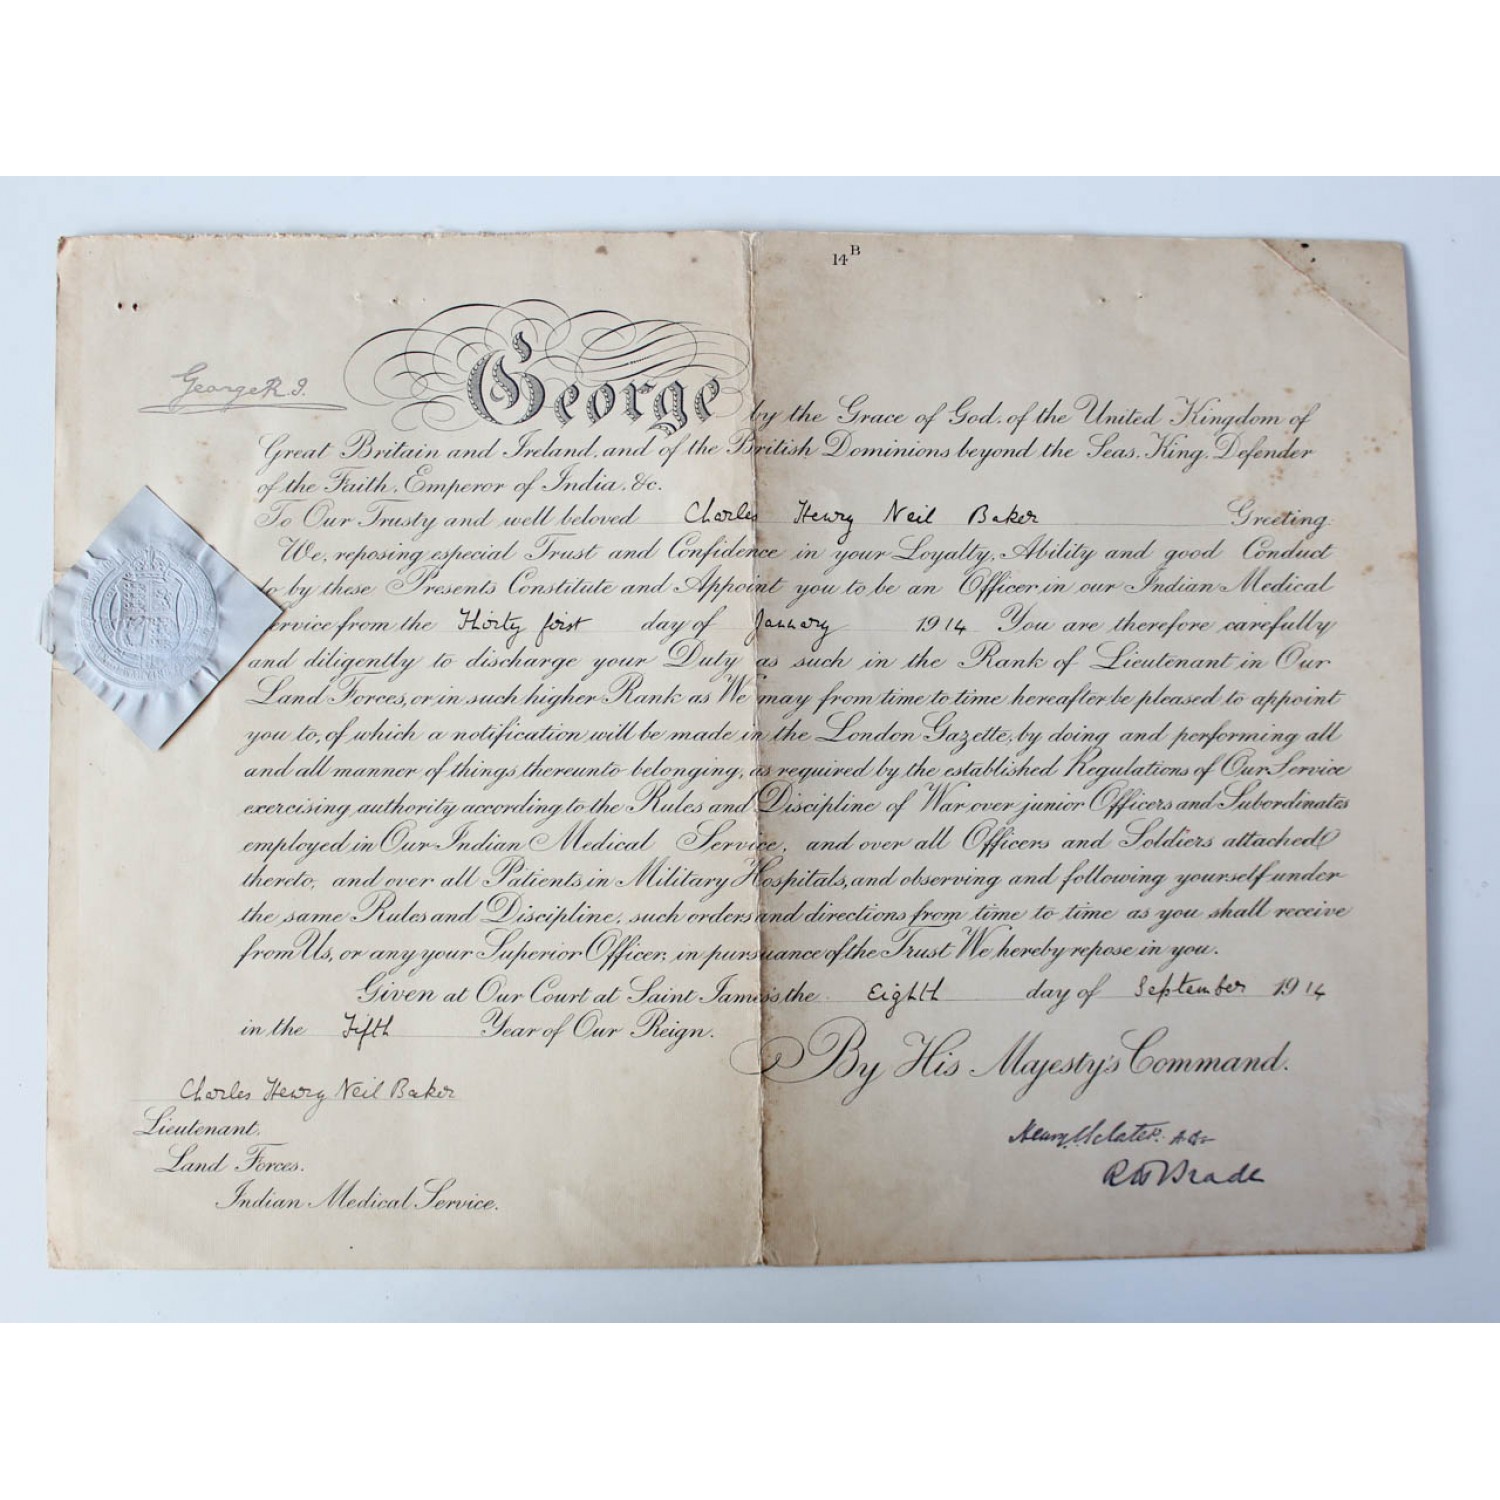 14B
George R.I.
George by the Grace of God, of the United Kingdom of
Great Britain and Ireland, and of the British Dominions beyond the Seas, King, Defender
of the Faith, Emperor of India, &c.
To Our Trusty and well beloved Charles Henry Neil Baker Greeting:
We, reposing especial Trust and Confidence in your Loyalty, Ability and good Conduct
do by these Presents Constitute and Appoint you to be an Officer in our Indian Medical
Service from the Thirty first day of January 1914 You are therefore carefully
and diligently to discharge your Duty as such in the Rank of Lieutenant in Our
Land Forces, or in such higher Rank as We may from time to time hereafter be pleased to appoint
you to, of which a notification will be made in the London Gazette, by doing and performing all
and all manner of things thereunto belonging, as required by the established Regulations of Our Service
exercising authority according to the Rules and Discipline of War over junior Officers and Subordinates
employed in Our Indian Medical Service, and over all Officers and Soldiers attached
thereto, and over all Patients in Military Hospitals, and observing and following yourself under
the same Rules and Discipline, such orders and directions from time to time as you shall receive
from Us, or any your Superior Officer, in pursuance of the Trust We hereby repose in you.
Given at Our Court at Saint James's the Eighth day of September 1914
in the Fifth Year of Our Reign.
By His Majesty's Command.
Charles Henry Neil Baker
Lieutenant,
Land Forces.
Indian Medical Service.
Henry Sclater.
R H Brade